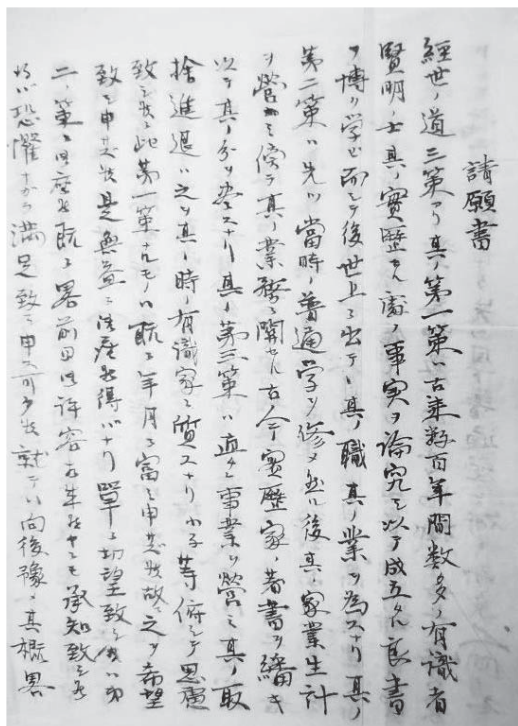 請願書
經世ノ道三策アリ其ノ第一策ハ古来数百年間数多ノ有識者
賢明ノ士其ノ實歴セル處ノ事実ヲ論究シ以テ成立タル良書
ヲ博ク学ビ而シテ後世上ニ出テヽ其ノ職其ノ業ヲ為スナリ其ノ
第二策ハ先ツ當時ノ普通学ヲ修メ然ル後其ノ家業生計
ヲ營ミ傍ラ其ノ業務ニ関セル古今實歴家ノ著書ヲ繙キ
以テ其ノ分ヲ尽スナリ其ノ第三策ハ直チニ事業ヲ營ミ其ノ取
捨進退ハ之ヲ其ノ時ノ有識家ニ質スナリ小子等俯シテ思慮
致候處此第一策ナルモノハ既ニ年月ニ富ミ申サス故ニ之ヲ希望
致シ申サス是無益ニ御座候得バナリ單ニ切望致シ候ハ第
二ノ策ニ御座候既ニ畧前四 許容 承知致
ハ恐懼ナカラ満足致シ申 就テハ向後豫メ其概畧